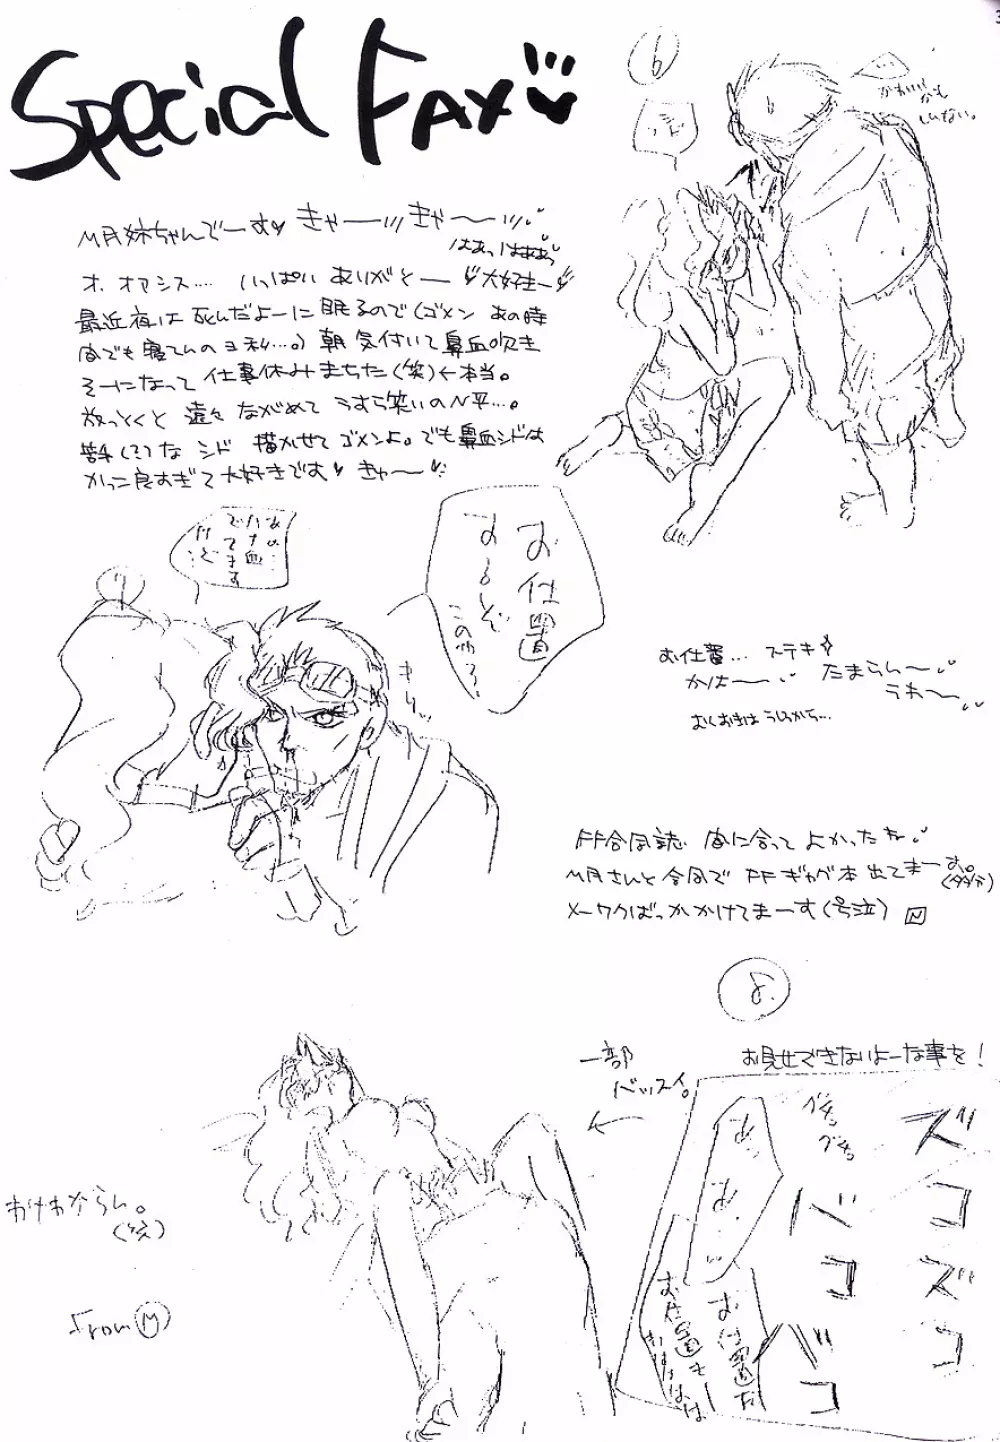 Special Fax
⑥
シド
かわいいかも
しんない。
M月姉ちゃんでーす きゃーッッ きゃ〜ッッ
はぁっ はぁぁっ
オ、オアシス…. いっぱい ありがとー 大好きー
最近夜は 死んだよーに 眠るので(ゴメン あの時
間でも寝てんのヨ 私…。) 朝 気付いて 鼻血吹き
そーになって 仕事休みまちた(笑)←本当。
放っとくと 遠々 ながめて うすら笑いのN平…。
(?)な シド 描かせて ゴメンよ。でも鼻血シドは
かっこ良すぎて大好きです きゃ〜
⑦
お仕置
するぞ
このやろ!
お仕置… ステキ
かは〜 たまらん〜
うわ〜
FF合同誌 間に合って よかったな
M月さんと 合同で FFギャグ本 出てまーす。
(多分)
メーワクばっかかけてまーす(号泣) N
⑧
お見せできないよーな事を!
一部
バッスイ。
ズコズコ
バコバコ
グチュ
グチュ
わけわからん。
(笑)
from M